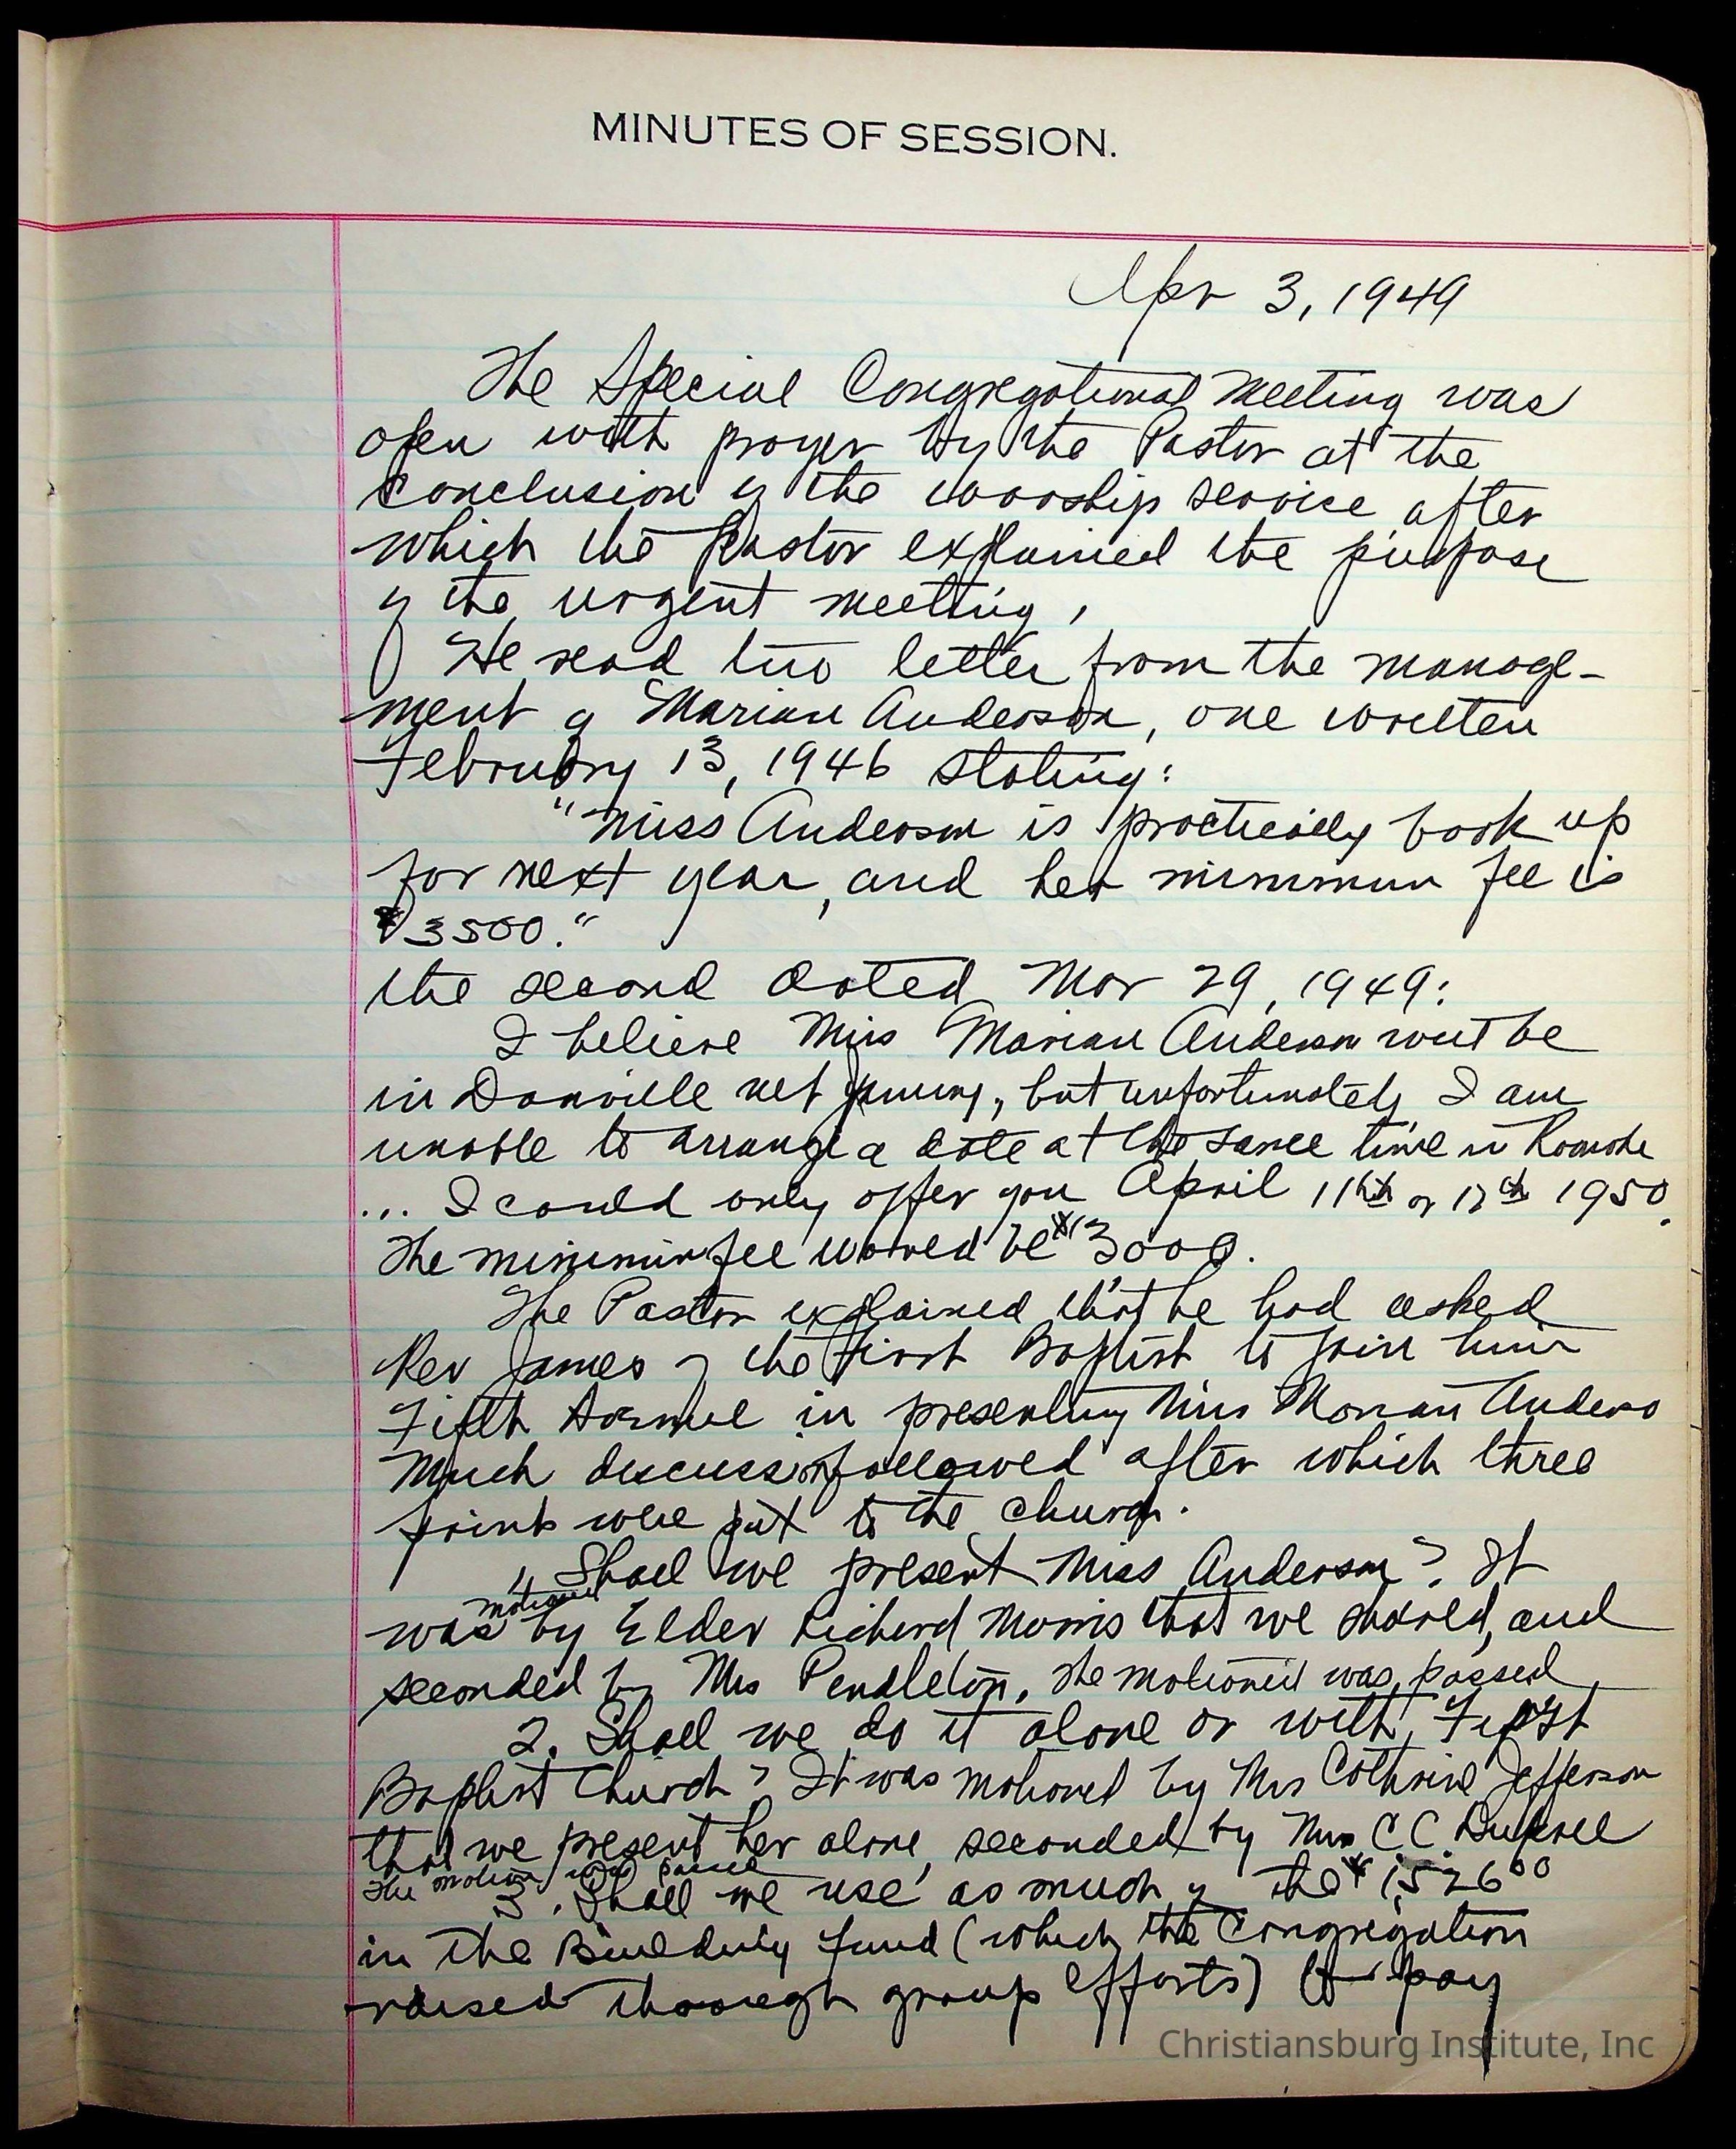 MINUTES OF SESSION.
Apr 3, 1949
The Special Congregational Meeting was
open with prayer by the Pastor at the
conclusion of the worship service after
which the Pastor explained the purpose
of the urgent meeting,
He read two letter from the manage-
ment of Marian Anderson, one written
February 13, 1946 stating:
"Miss Anderson is practically book up
for next year, and her minimum fee is
$3500."
the second dated Mar 29, 1949:
I believe Miss Marian Anderson will be
in Danville next , but unfortunately I am
unable to arrange a date at the same time in Roanoke
... I could only offer you April 11th or 12th 1950.
The minimum fee would be $3000.
The Pastor explained that he had asked
Rev James of the First Baptist to join him
Fifth Avenue in presenting Miss Marian Anderso
Much discussion followed after which three
points were put to the church.
1, Shall we present Miss Anderson? It
motioned
was by Elder Richard Morris that we should, and
seconded by Mrs Pendleton, The motioned was passed
2. Shall we do it alone or with First
Baptist Church? It was motioned by Mrs Cathrine Jefferson
that we present her alone, seconded by Mrs C C Dupree
The motion was passed
3. Shall we use as much of the $1,526.00
in the Building Fund (which the Congregation
raised through group efforts) to pay
Christiansburg Institute, Inc